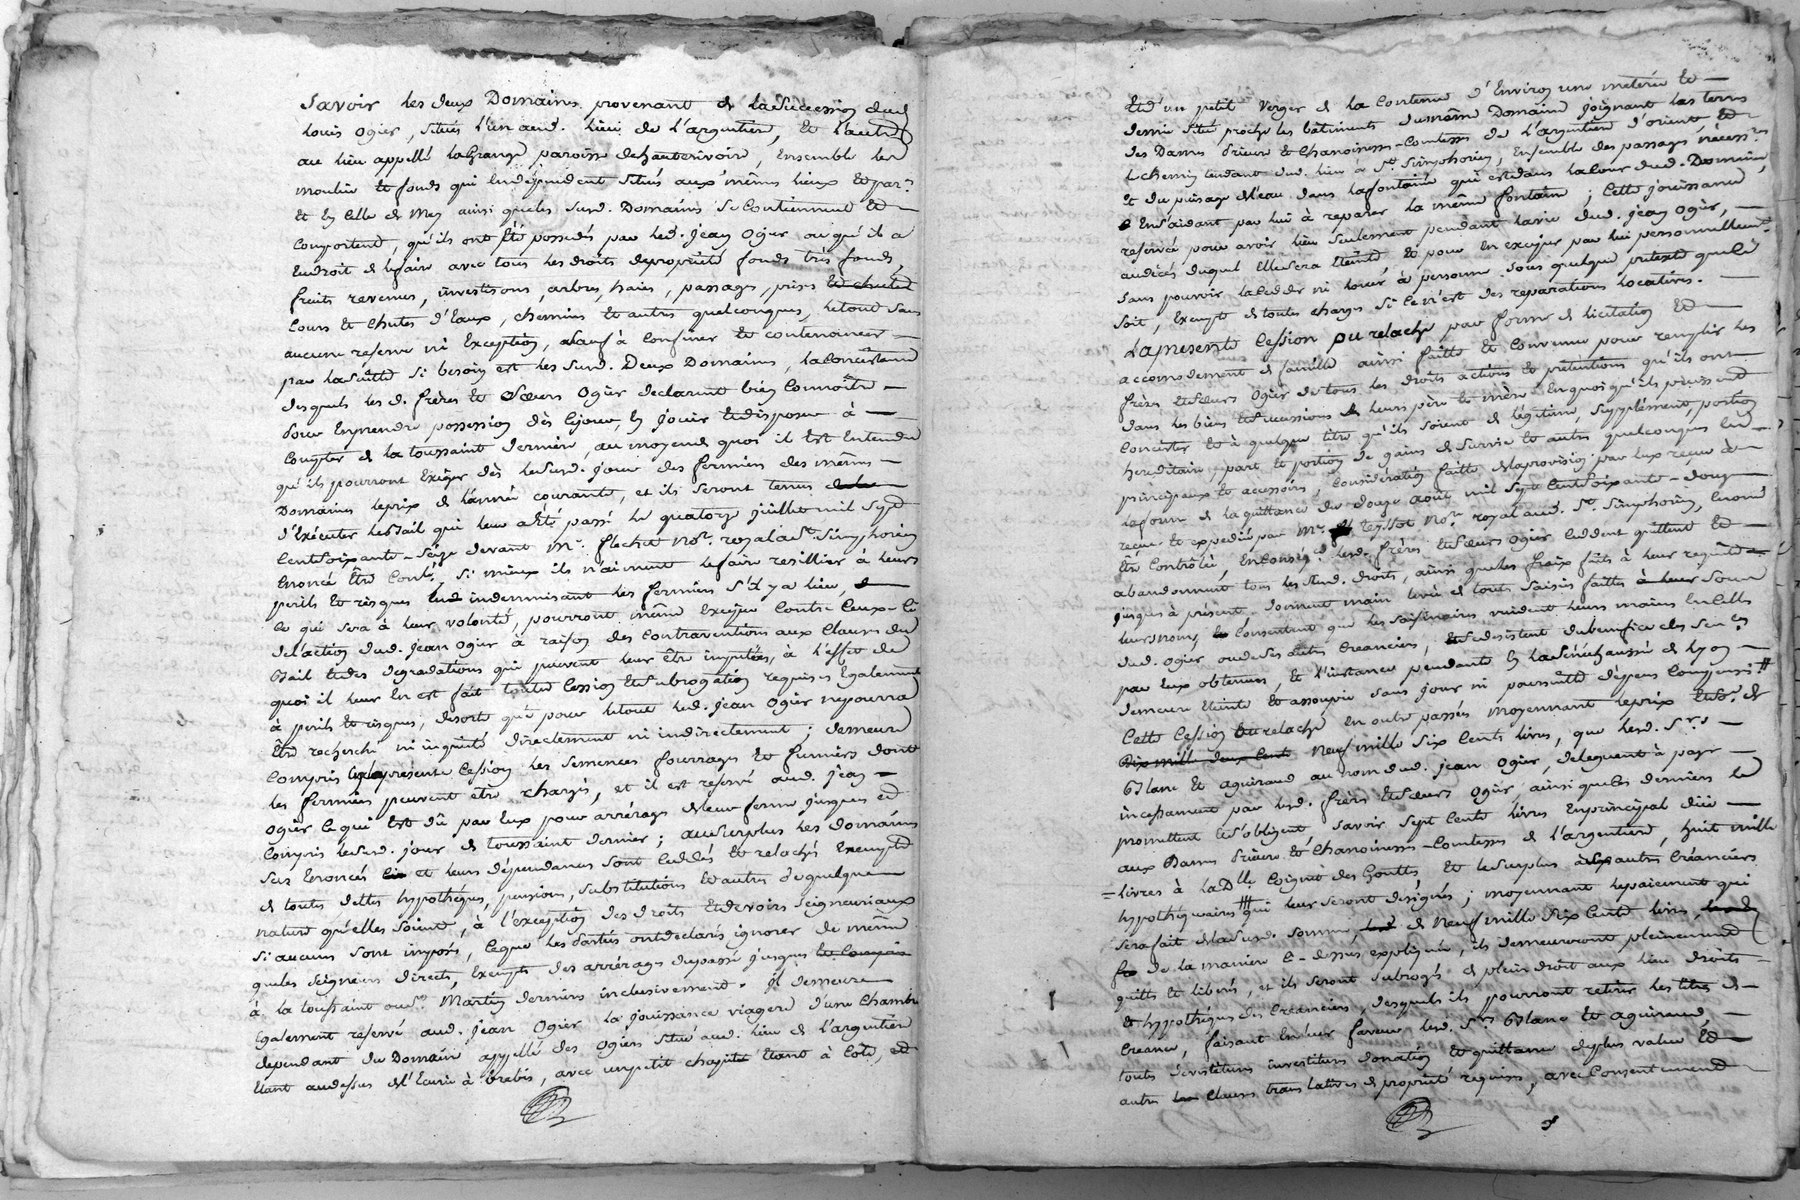 Savoir les deux Domaines provenant de la Succession dud.
Louis Ogier, situés l'un aud. lieu de l'argentiere, et l'autre
au lieu appellé la Grange paroisse de hauterivoire, Ensemble les
moulin et fonds qui Endépendent Situés aux mêmes lieux et par.se
et En Celle de Mey ainsi que les Susd. Domaines Se Contiennent et
Comportent, qu'ils ont été possedés par led. Jean Ogier ou qu'il a
Eu droit de le faire avec tous les droits de propriété fonds très fonds,
fruits revenus, investisons, arbres, haies, passages, prises
Cours et Chutes d'Eaux, chemins et autres quelconques, le tout Sans
aucune reserve ni Exception, Sauf à Confiner et contenancer
par la Suitte Si besoin est les Susd. Deux Domaines, la Consistance
desquels les d. frères et Sœurs Ogier declarent bien Connoître
pour En prendre possession dès Ce jour, En jouir et disposer à
Compter de la toussaint derniere, au moyend de quoi il Est Entendu
qu'ils pourront Exiger dès le Susd. jour des fermiers des mêmes
Domaines le prix de l'année courante, et ils Seront tenus
d'Exécuter le Bail qui leur a été passé le quatorze juillet mil Sept
Cent Soixante-Seize devant M.e flechet no.re royal a St. Simphorien
Enoncé Etre Conté, Si mieux ils n'aiment le faire resillier à leurs
perils et risques En indemnisant les fermiers S'il y a lieu,
Ce qui Sera à leur volonté, pourront même Exercer Contre Ceux-Ci
de l'action dud. Jean Ogier à raison des Contraventions aux Clauses du
Bail et des degradations qui peuvent leur être imputées, à l'effet de
quoi il leur En est fait toute Cession et Subrogation requises Egalement
à perils et risques, de sorte que pour le tout led. Jean Ogier ne pourra
Etre recherché ni inquiété directement ni indirectement; demeure
Compris En la presente Cession les Semences fourrages et fumiers dont
les fermiers peuvent etre chargés, et il est reservé aud. Jean
Ogier Ce qui Est dû par Eux pour arrérages de leur ferme jusques et
Compris le Susd. jour de toussaint dernier; au Surplus les domaines
Sus Enoncés et leurs dépendances Sont Ceddés et relachés Exempts
de toutes dettes hypothéques, pensions, Substitutions et autres de quelque
nature qu'elles soient, à l'exception des droits et devoirs Seigneuriaux
Si aucuns Sont imposés, Ce que les Parties ont declaré ignorer de même
que les Seigneurs directs, Exempts des arrérages du passé jusques
à la toussaint ou St. Martin derniers inclusivement. Il demeure
Egalement reservé aud. Jean Ogier la jouissance viagere d'une Chambre
dependant du Domaine appellé des Ogiers Situé aud. lieu de l'argentiere
Etant audessus de l'Ecurie à brebis, avec un petit chapité Etant à Coté, et
Et d'un petit Verger de la Contenue d'Environ une meterée Et
demie Situé proche les bâtiments du même Domaine Joignant les terres
des Dames Prieure et Chanoinesses-Comtesses de l'argentiere d'orient, Et
le chemin tendant dud. lieu à St. Simphorien, Ensemble des passages nécess.res
et du puisage de l'eau dans la fontaine qui est dans la Cour dud. Domaine,
En S'aidant par lui à reparer la même fontaine; Cette jouissance
reservée pour avoir lieu Seulement pendant la vie dud. Jean Ogier,
au decès duquel Elle Sera Eteinte et pour En Exercer par lui personnellement
Sans pouvoir la Cedder ni louer à personne Sous quelque pretexte que Ce
Soit, Exempt de toutes charges Si Ce n'est des reparations locatives.
La presente Cession ou relache par forme de licitation Et
accomodement de famille ainsi faitte et Convenue pour remplir les
frères et Sœurs Ogier de tous les droits actions et prétentions qu'ils ont
dans les biens et Successions de leurs père et mère En quoi qu'ils puissent
Consister et à quelque titre qu'ils soient de légitime, Supplément, portion
hereditaire, part et portion de gains de Survie et autres quelconques En
principaux et accessoires Considération faitte de la provision par Eux reçue à
la forme de la quittance du douze août mil Sept Cent Soixante-douze
reçue et expediée par M.e Teyssot no.re royal aud. St. Simphorien, Enoncé
Etre Contrôlé, En Conseq.ce lesd. frères et Sœurs Ogier Ceddent quittent Et
abandonnent tous les Susd. droits, ainsi que les fraix faits à leur requête
jusques à présent, donnent main levée de toutes Saisies faittes à leur
leurs noms, Consentent que les Saisissaires vuident leurs mains En Celles
dud. Ogier ou de Ses autres Creanciers, Se desistent du benefice des Sen.ces
par Eux obtenues, et l'instance pendante En la Sénéchaussée de Lyon
demeure Eteinte et assoupie Sans jour ni poursuitte dépens Compensés #
Cette Cession Ou relache En outre passée moyennant le prix Et So.e de
Dix mille deux Cent Neuf mille Six Cents livres, que lesd. S.rs
Blanc et aguiraud au nom dud. Jean Ogier, deleguent à payer
incessament par lesd. frères et Sœurs Ogier ainsi que les derniers le
promettent Et S'obligent, Savoir Sept Cents livres En principal dûe
aux Dames Prieure et Chanoinesses-Comtesses de l'argentiere, huit mille
= livres à la Dlle. Coignet des Gouttes Et le Surplus à Ses autres Créanciers
hypothéquaires qui leur Seront designés; moyennant le paiement qui
Sera fait de la Susd. Somme, de Neuf mille Six Cents livres,
de la maniere Ci-dessus expliquée, ils demeureront pleinement
quittes et liberés, et ils Seront Subrogés de plein droit aux lieu droits
et hypothéques des Creanciers, desquels ils pourront retirer les titres de
Creance, faisant En leur faveur lesd. S.rs Blanc et aguiraud,
toutes devestitures investitures donation Et quittance de plus value Et
autres Clauses translatives de propriété requises, avec Consentement